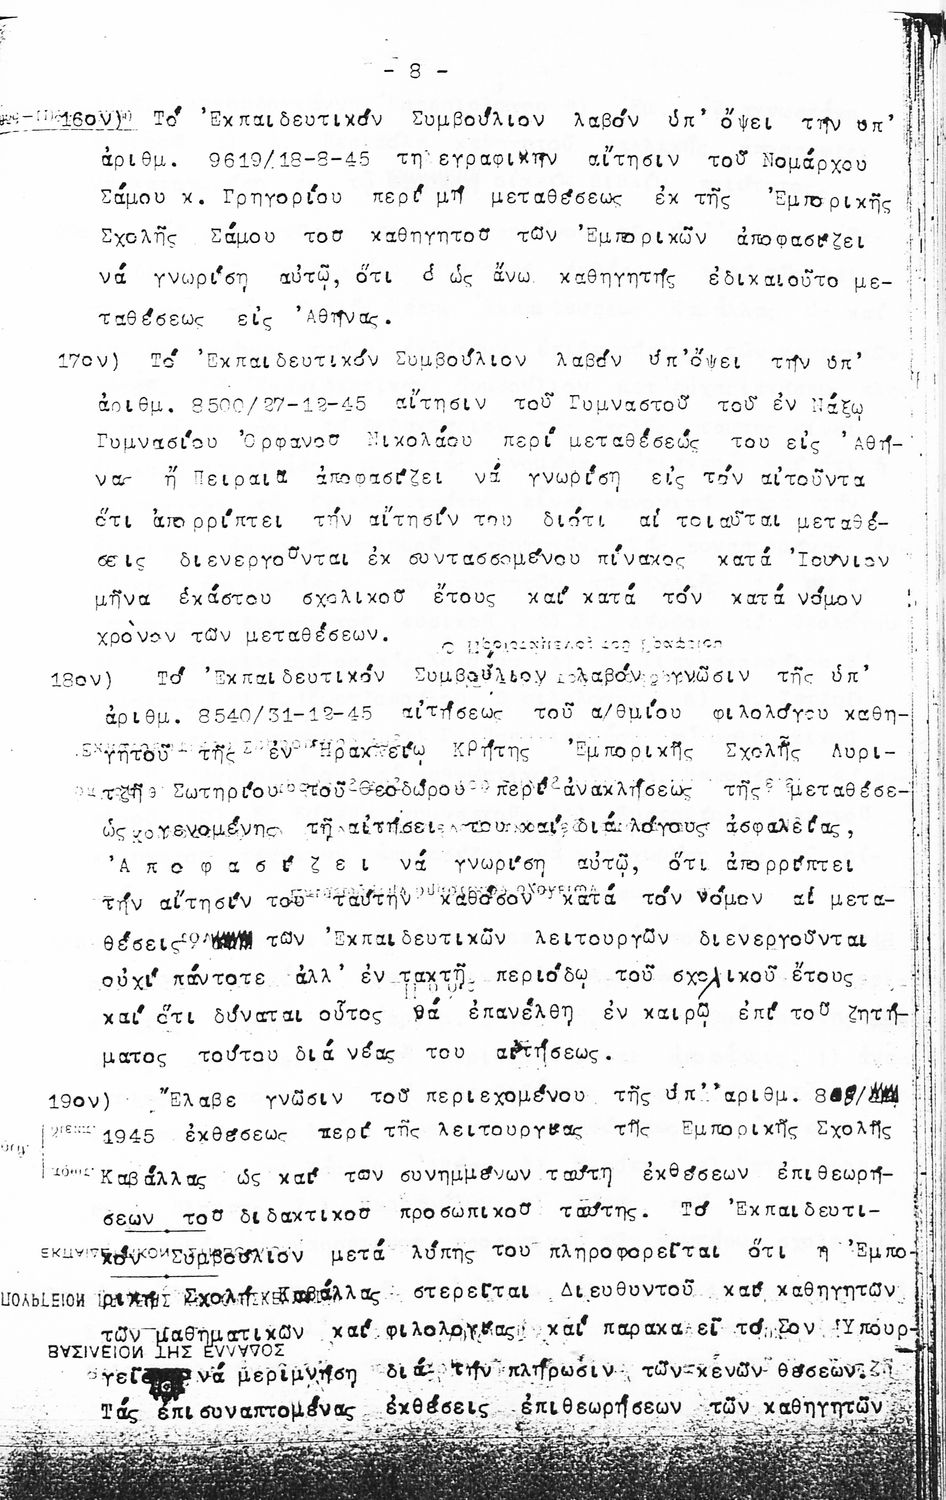 - 8 -
16ον) Τό Ἐκπαιδευτικόν Συμβούλιον λαβόν ὑπ' ὄψει τήν υπ'
ἀριθμ. 9619/18-8-45 τηλεγραφικήν αἴτησιν τοῦ Νομάρχου
Σάμου κ. Γρηγορίου περί μή μεταθέσεως ἐκ τῆς Ἐμπορικῆς
Σχολῆς Σάμου του καθηγητοῦ τῶν Ἐμπορικῶν ἀποφασίζει
νά γνωρίση αὐτῷ, ὅτι ὁ ὡς ἄνω καθηγητής ἐδικαιοῦτο με-
ταθέσεως εἰς Ἀθήνας.
17ον) Τό Ἐκπαιδευτικόν Συμβούλιον λαβόν ὑπ'ὄψει τήν ὑπ'
ἀριθμ. 8500/27-12-45 αἴτησιν τοῦ Γυμναστοῦ τοῦ ἐν Νάξῳ
Γυμνασίου Ὀρφανοῦ Νικολάου περί μεταθέσεώς του εἰς Ἀθή-
να ἤ Πειραιᾶ ἀποφασίζει νά γνωρίση εἰς τόν αἰτοῦντα
ὅτι ἀπορρίπτει τήν αἴτησίν του διότι αἱ τοιαῦται μεταθέ-
σεις διενεργοῦνται ἐκ συντασσομένου πίνακος κατά Ἰούνιον
μῆνα ἑκάστου σχολικοῦ ἔτους καί κατά τόν κατά νόμον
χρόνον τῶν μεταθέσεων.
18ον) Τό Ἐκπαιδευτικόν Συμβούλιον λαβόν γνῶσιν τῆς ὑπ'
ἀριθμ. 8540/31-12-45 αἰτήσεως τοῦ α/θμίου φιλολόγου καθη-
γητοῦ τῆς ἐν Ἡρακλείῳ Κρήτης Ἐμπορικῆς Σχολῆς Λυρι-
τζῆ Σωτηρίου τοῦ Θεοδώρου περί ἀνακλήσεως τῆς μεταθέσε-
ώς γενομένης τῇ αἰτήσει του καί διά λόγους ἀσφαλείας,
Ἀ π ο φ α σ ί ζ ε ι νά γνωρίση αὐτῷ, ὅτι ἀπορρίπτει
τήν αἴτησίν του ταύτην καθόσον κατά τόν νόμον αἱ μετα-
θέσεις τῶν Ἐκπαιδευτικῶν λειτουργῶν διενεργοῦνται
οὐχί πάντοτε ἀλλ' ἐν τακτῇ περιόδῳ τοῦ σχολικοῦ ἔτους
καί ὅτι δύναται οὗτος θά ἐπανέλθη ἐν καιρῷ ἐπί τοῦ ζητή-
ματος τούτου διά νέας του αἰτήσεως.
19ον) Ἔλαβε γνῶσιν τοῦ περιεχομένου τῆς ὑπ' ἀριθμ.
1945 ἐκθέσεως περί τῆς λειτουργίας τῆς Ἐμπορικῆς Σχολῆς
Καβάλλας ὡς καί των συνημμένων ταύτη ἐκθέσεων ἐπιθεωρή-
σεων τοῦ διδακτικοῦ προσωπικοῦ ταύτης. Τό Ἐκπαιδευτι-
κόν Συμβούλιον μετά λύπης του πληροφορεῖται ὅτι ἡ Ἐμπο-
ρική Σχολή Καβάλλας στερεῖται Διευθυντοῦ καί καθηγητῶν
τῶν μαθηματικῶν καί φιλολογίας καί παρακαλεῖ τό Σον Ὑπουρ-
γεῖον νά μεριμνήση διά τήν πλήρωσιν τῶν κενῶν θέσεων.
Τάς ἐπισυναπτομένας ἐκθέσεις ἐπιθεωρήσεων τῶν καθηγητῶν